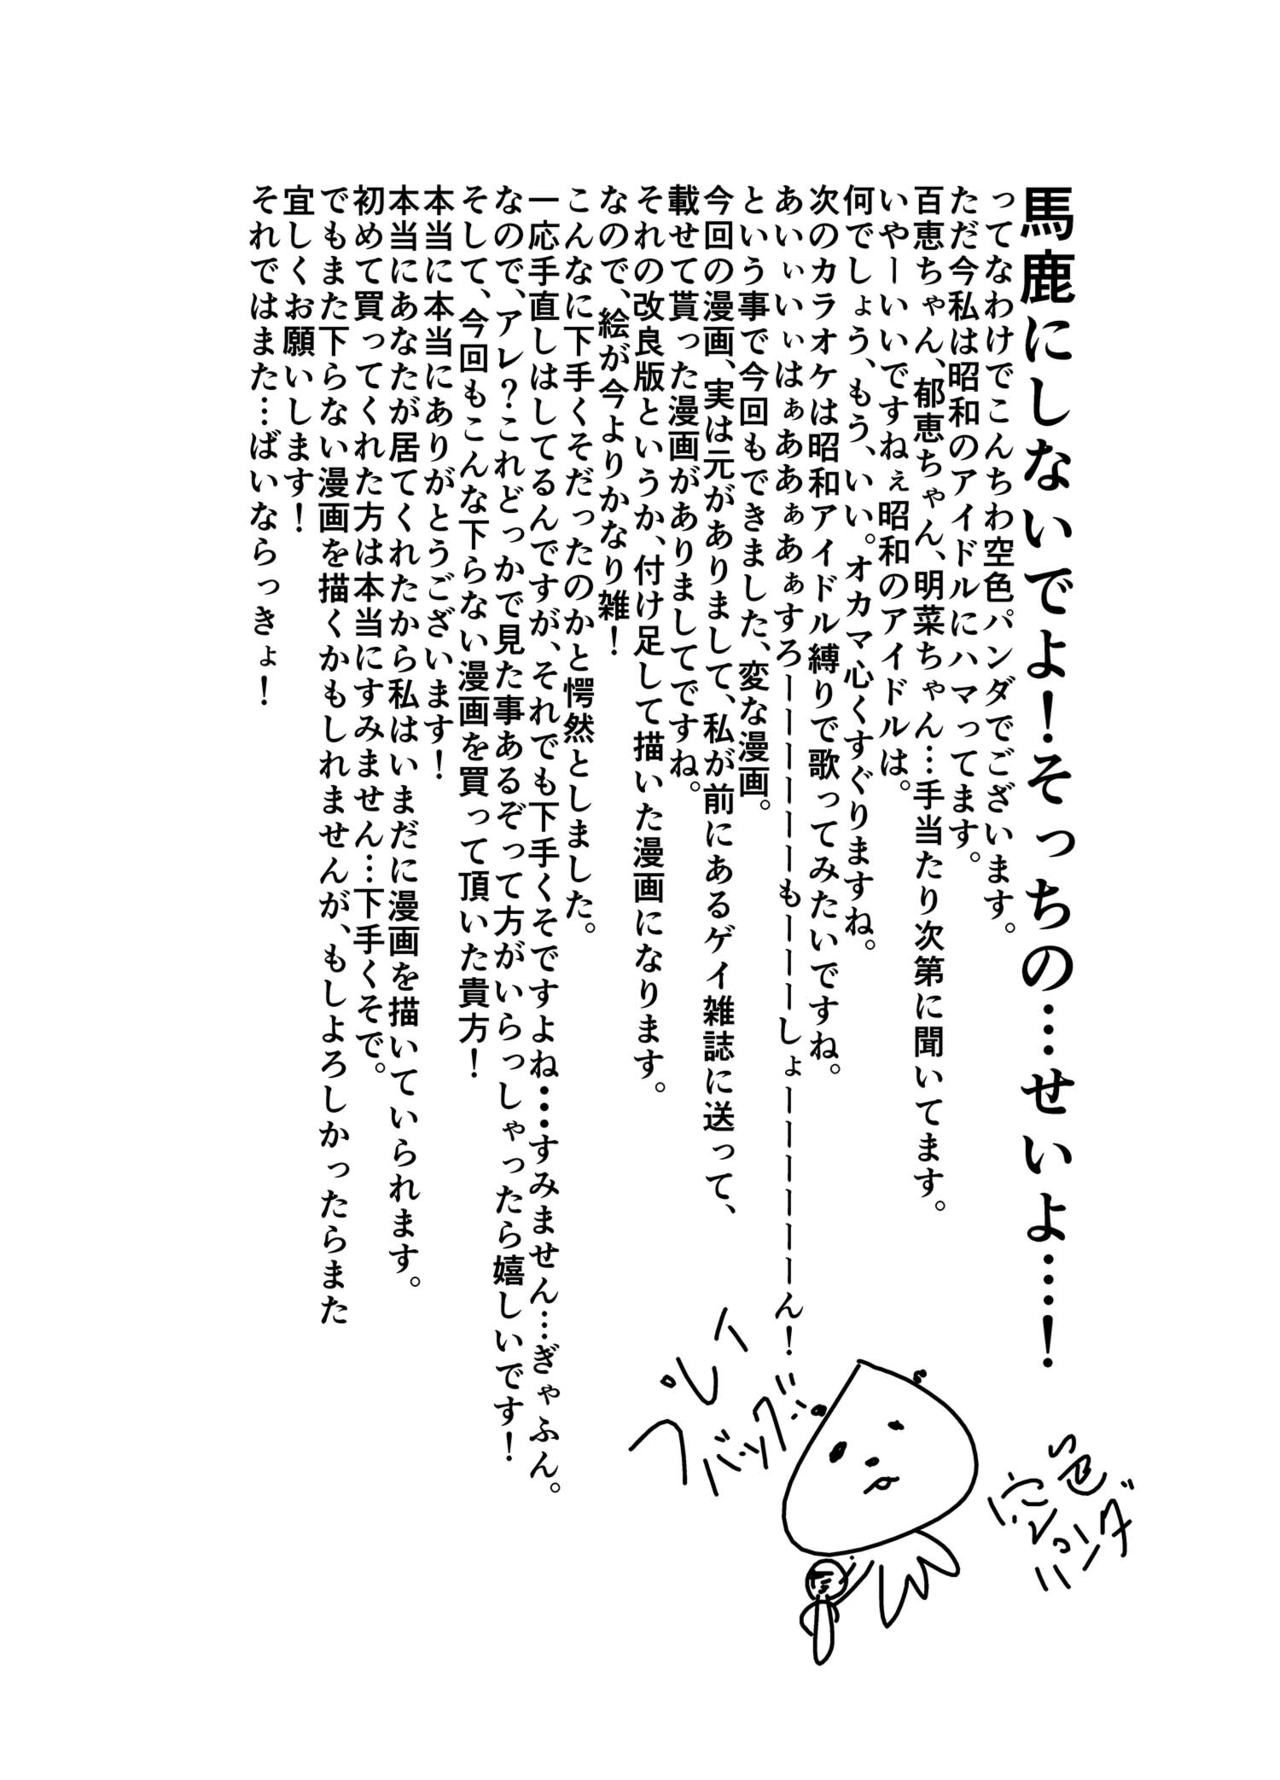 馬鹿にしないでよ！そっちの…せいよ…！
ってなわけでこんちわ空色パンダでございます。
ただ今私は昭和のアイドルにハマってます。
百恵ちゃん、郁恵ちゃん、明菜ちゃん…手当たり次第に聞いてます。
いやーいいですねぇ昭和のアイドルは。
何でしょう、もう、いい。オカマ心くすぐりますね。
次のカラオケは昭和アイドル縛りで歌ってみたいですね。
あいぃいぃはぁああぁあぁすろーーーーーーもーーーしょーーーーーーん！
という事で今回もできました、変な漫画。
今回の漫画、実は元がありまして、私が前にあるゲイ雑誌に送って、
載せて貰った漫画がありましてですね。
それの改良版というか、付け足して描いた漫画になります。
なので、絵が今よりかなり雑！
こんなに下手くそだったのかと愕然としました。
一応手直しはしてるんですが、それでも下手くそですよね…すみません…ぎゃふん。
なので、アレ？これどっかで見た事あるぞって方がいらっしゃったら嬉しいです！
そして、今回もこんな下らない漫画を買って頂いた貴方！
本当に本当にありがとうございます！
本当にあなたが居てくれたから私はいまだに漫画を描いていられます。
初めて買ってくれた方は本当にすみません…下手くそで。
でもまた下らない漫画を描くかもしれませんが、もしよろしかったらまた
宜しくお願いします！
それではまた…ばいならっきょ！
プレイ
バック!!
空色
パンダ